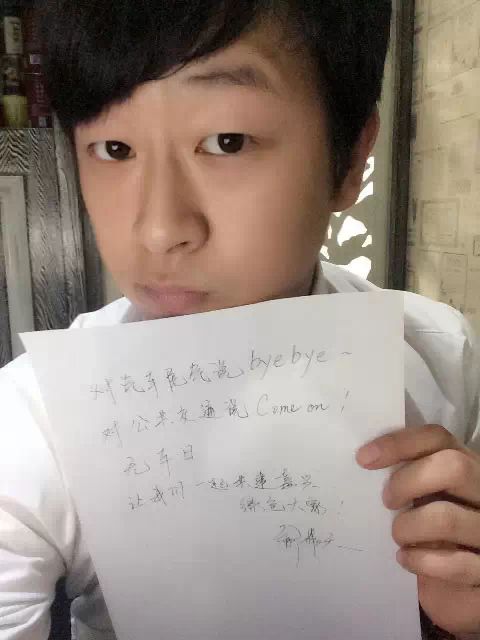 对汽车尾气说byebye~
对公共交通说Come on!
无车日
让我们一起共建嘉兴
绿色大家!